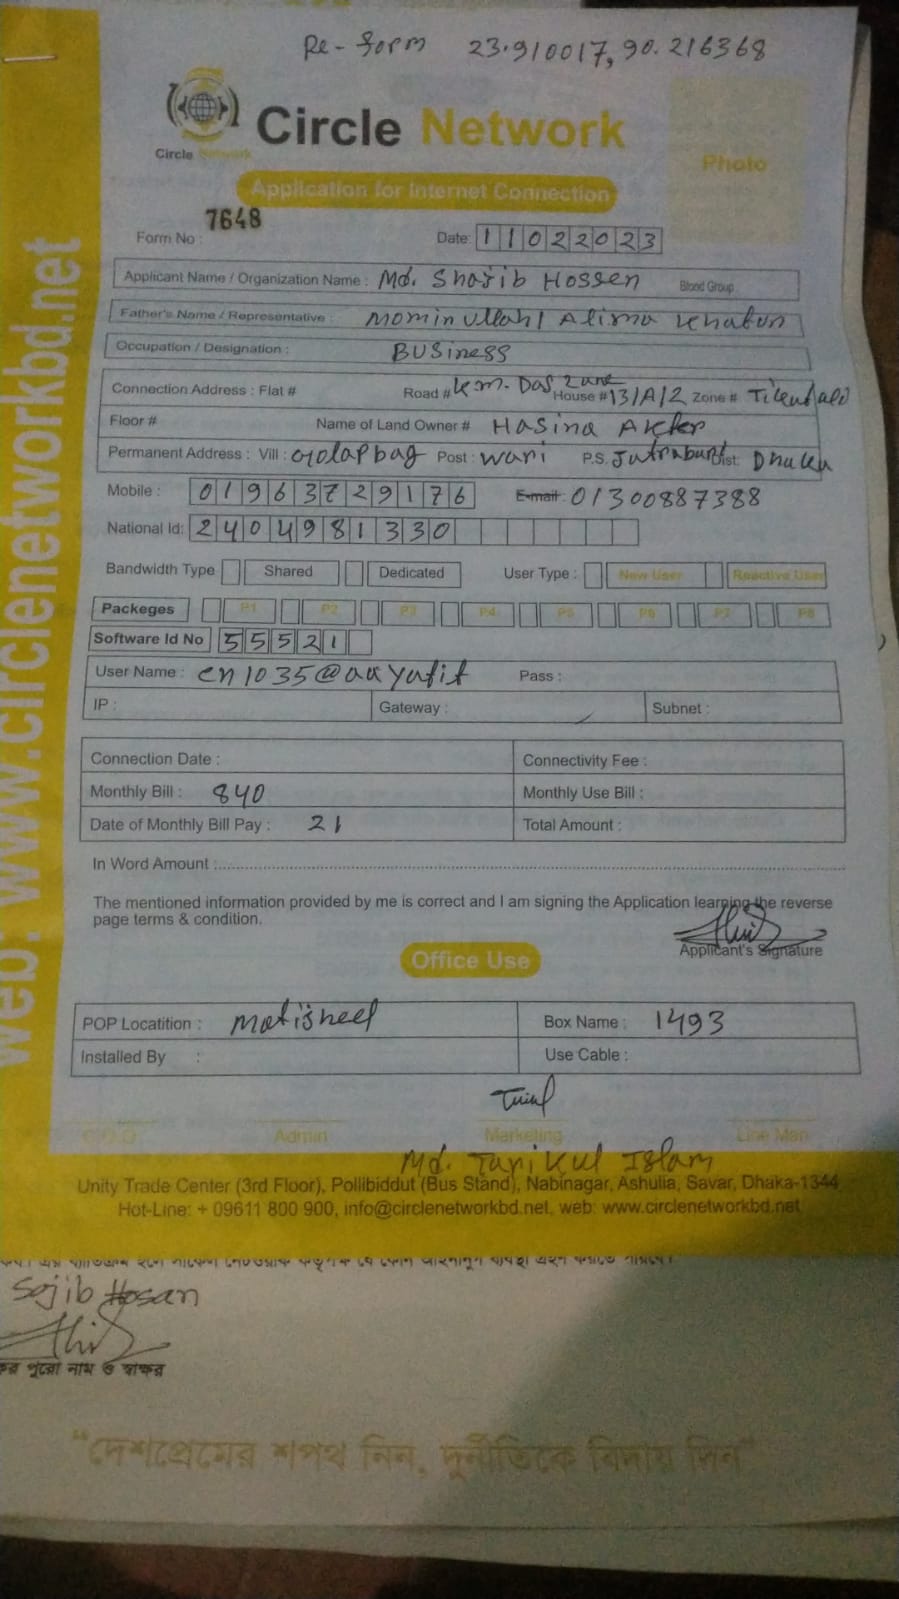 Re-form 23.910017, 90.216368
Circle Network
Circle Network
Photo
Application for Internet Connection
Form No : 7648
Date: 11022023
Applicant Name / Organization Name : Md. Shajib Hossen Blood Group
Father's Name / Representative : Mominullah / Alima Khatun
Occupation / Designation : BUSiness
Connection Address : Flat # Road # K.M. Das Lane House # 13/A/2 Zone # Tikatuli
Floor # Name of Land Owner # Hasina Akter
Permanent Address : Vill : Golapbag Post : wari P.S. Jatrabari Dist: Dhaka
Mobile : 01963729176 E-mail : 01300887388
National Id: 2404981330
Bandwidth Type Shared Dedicated User Type : New User Reactive User
Packeges P1 P2 P3 P4 P5 P6 P7 P8
Software Id No 55521
User Name : Pass :
IP : Gateway : Subnet :
Connection Date : Connectivity Fee :
Monthly Bill : 840 Monthly Use Bill :
Date of Monthly Bill Pay : 21 Total Amount :
In Word Amount :
The mentioned information provided by me is correct and I am signing the Application learning the reverse
page terms & condition.
Applicant's Signature
Office Use
POP Locatition : Motijheel Box Name : 1493
Installed By : Use Cable :
C.O.O Admin Marketing Line Man
Md. Tarikul Islam
Unity Trade Center (3rd Floor), Pollibiddut (Bus Stand), Nabinagar, Ashulia, Savar, Dhaka-1344
Hot-Line: + 09611 800 900, info@circlenetworkbd.net, web: www.circlenetworkbd.net
web: www.circlenetworkbd.net
Sojib Hosan
পুরো নাম ও স্বাক্ষর
“দেশপ্রেমের শপথ নিন, দুর্নীতিকে বিদায় দিন”